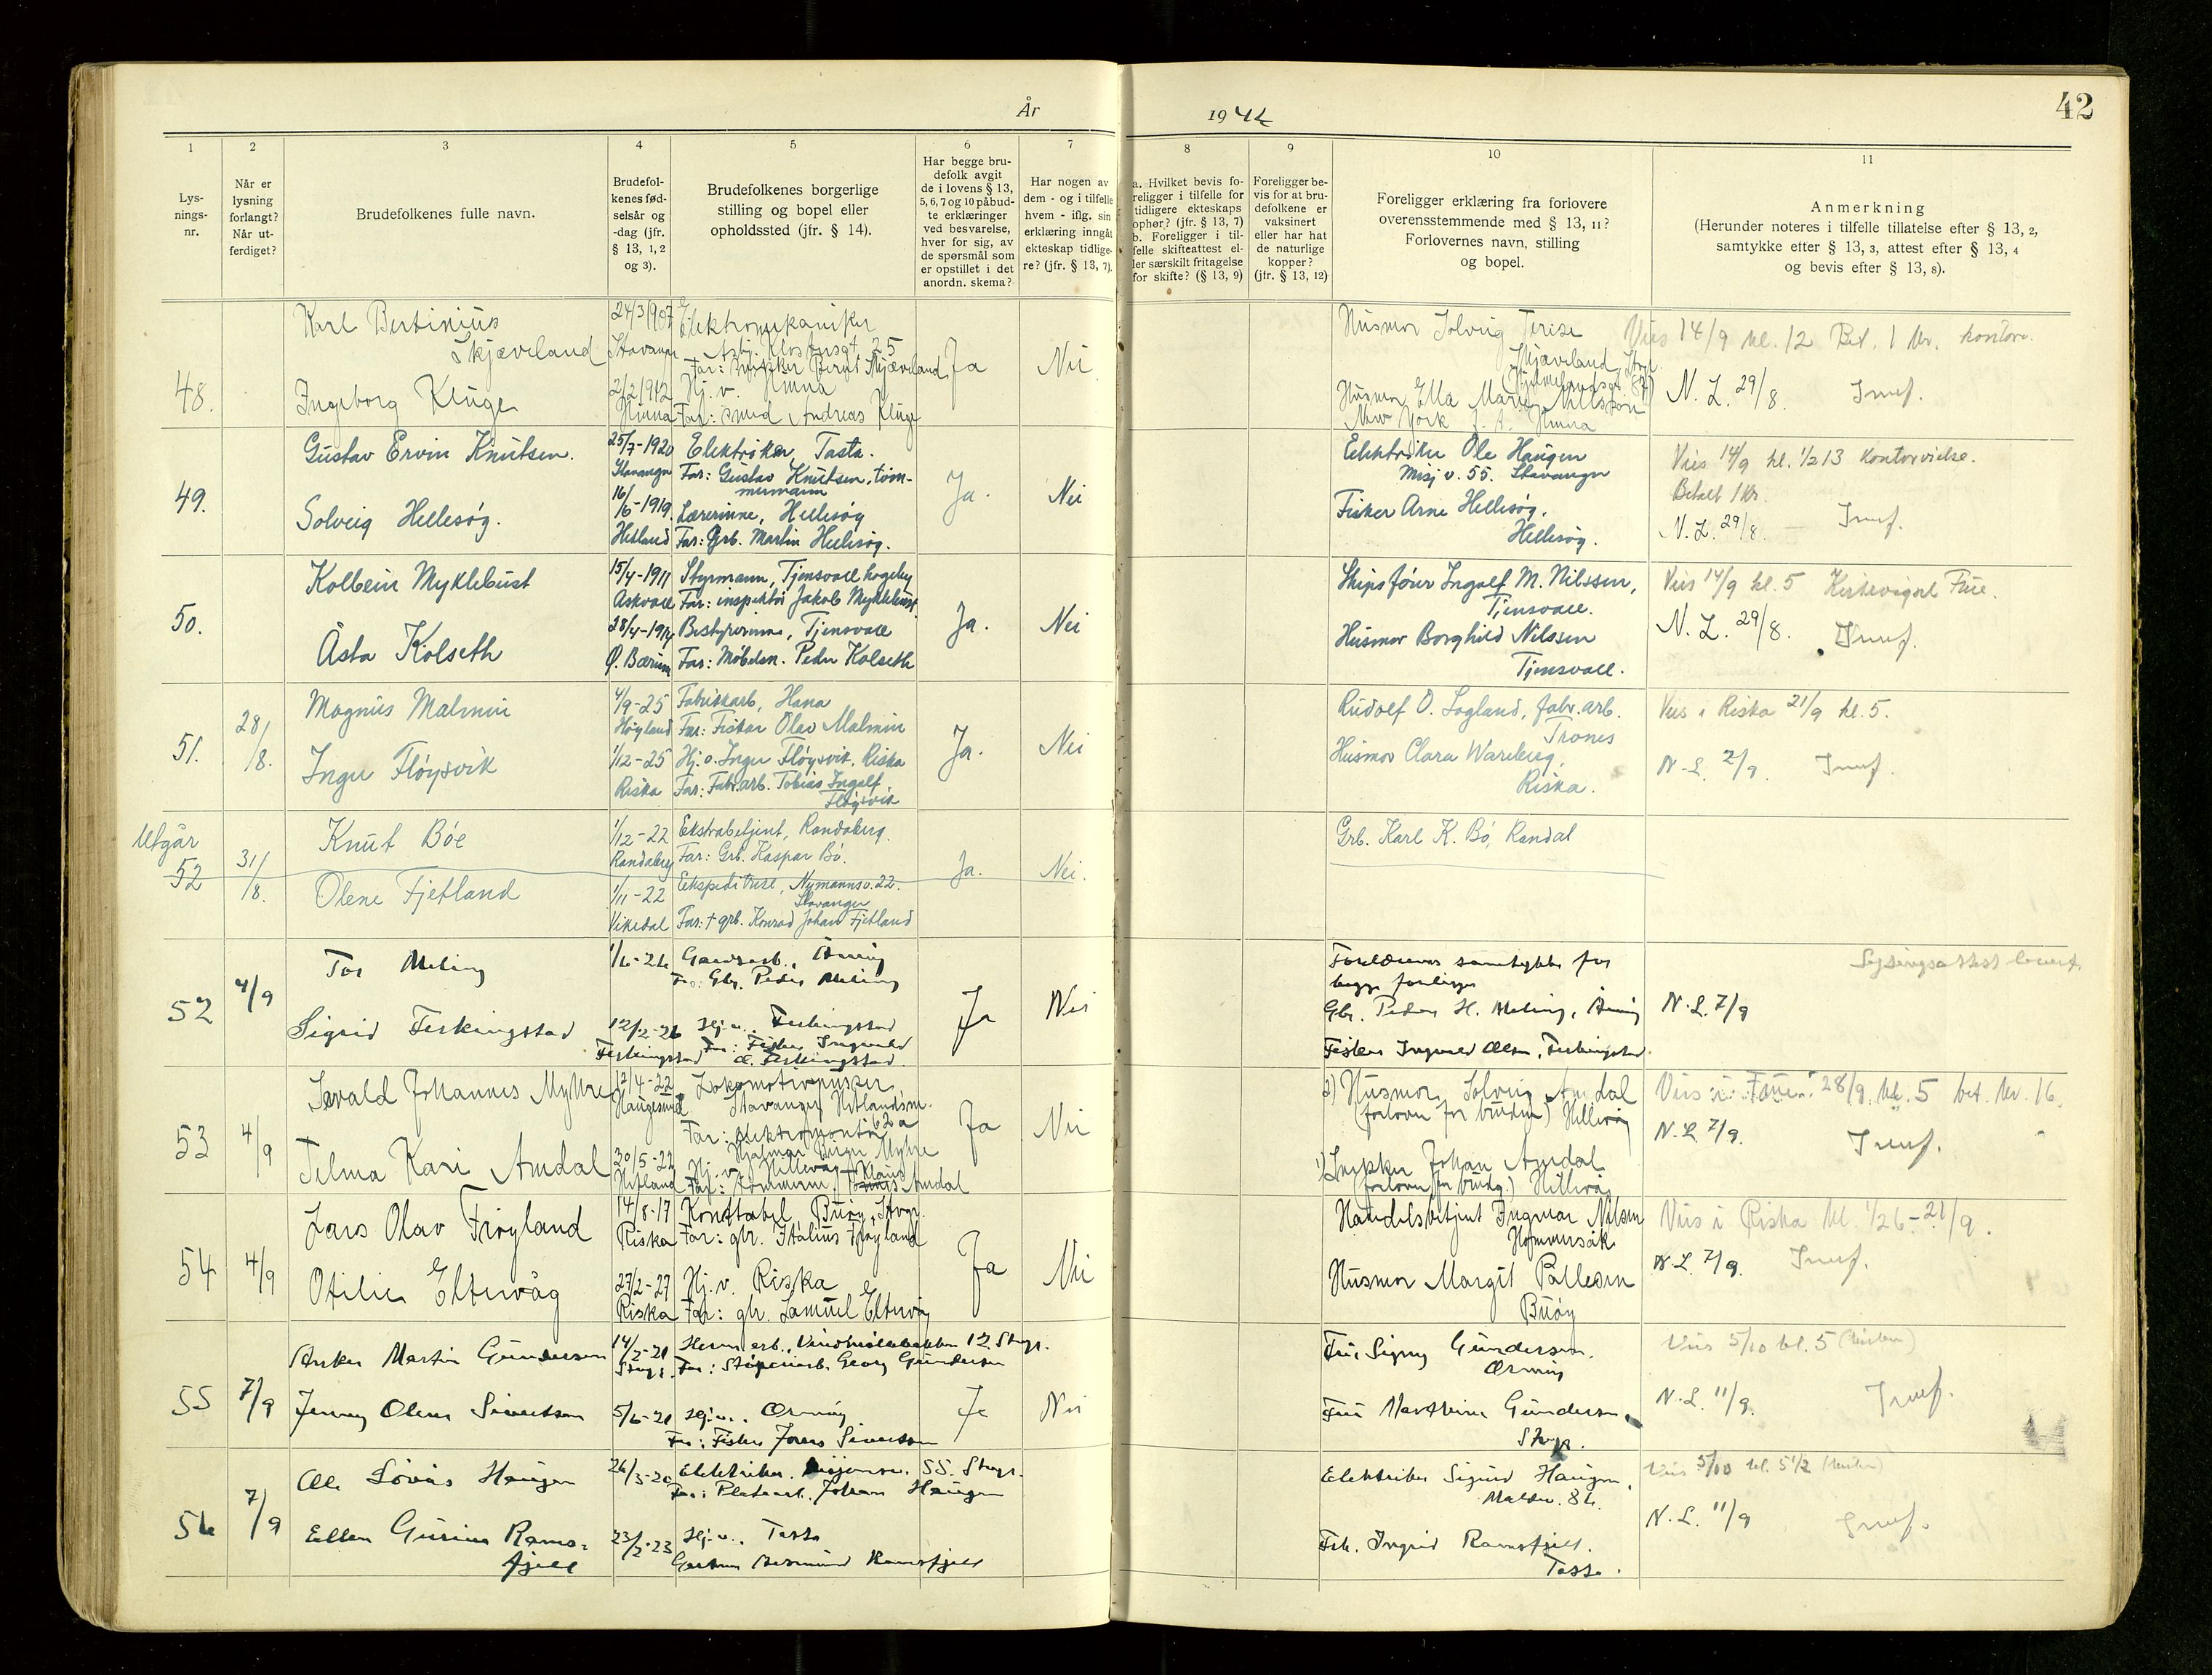 År 1946
42
1
2
3
4
5
6
7
8
9
10
11
Lys-
nings-
nr.
Når er
lysning
forlangt?
Når ut-
ferdiget?
Brudefolkenes fulle navn.
Brudefol-
kenes fød-
selsår og
-dag (jfr.
§ 13, 1, 2
og 3).
Brudefolkenes borgerlige
stilling og bopel eller
opholdssted (jfr. § 14).
Har begge bru-
defolk avgit
de i lovens § 13,
5, 6, 7 og 10 påbud-
te erklæringer
ved besvarelse,
hver for sig, av
de spørsmål som
er opstillet i det
anordn. skema?
Har nogen av
dem - og i tilfelle
hvem - iflg. sin
erklæring inngåt
ekteskap tidlige-
re? (jfr. § 13, 7).
a. Hvilket bevis fo-
religger i tilfelle for
tidligere ekteskaps
ophør? (jfr. § 13, 7)
b. Foreligger i til-
felle skifteattest el-
ler særskilt fritagelse
for skifte? (§ 13, 9)
Foreligger be-
vis for at bru-
defolkene er
vaksinert
eller har hat
de naturlige
kopper?
(jfr. § 13, 12)
Foreligger erklæring fra forlovere
overensstemmende med § 13, 11?
Forlovernes navn, stilling
og bopel.
Anmerkning
(Herunder noteres i tilfelle tillatelse efter § 13, 2,
samtykke efter § 13, 3, attest efter § 13, 4
og bevis efter § 13, 8).
48.
Karl Bertinius
Skjæveland
Ingeborg Kluge
24/3 1907
Stavanger
2/2 1912
Hinna
Elektromekaniker
Asbj. Klostersgt 25
Far: Snekker Bernt Skjæveland
Hj. v. Hinna
Far: smed Andreas Kluge
Ja
Nei
Husmor Solveig Terese
Skjæveland, Stvgr.
Husmor Ella Marie Nillsson
New York f. t. Hinna
Vies 14/9 kl. 12 Bet. 1 kr. kontor.
N. L. 29/8.
49.
Gustav Ervin Knutsen.
Solveig Hellesøy.
25/7-1920
Stavanger
16/6-1919.
Hetland
Elektriker, Tasta.
Far: Gustav Knutsen, tøm-
mermann
Lærerinne, Hellesøy
Far: Grb. Martin Hellesøy.
Ja.
Nei
Elektriker Ole Haugen
Misj v. 55. Stavanger
Fisker Arne Hellesøy,
Hellesøy.
Vies 14/9 kl. 1/2 13 Kontorvielse.
Betalt 1 kr.
N. L. 29/8.
50.
Kolbein Myklebust
Åsta Kolseth
15/4-1911
Askvoll
28/4-1914
Ø. Bærum
Styrmann, Tjensvoll hageby
Far: inspektør Jakob Myklebust
Bestyrerinne, Tjensvoll
Far: Møbelsn. Peder Kolseth
Ja.
Nei
Skipsfører Ingolf M. Nilssen,
Tjensvoll.
Husmor Borghild Nilssen
Tjensvoll.
Vies 14/9 kl. 5 Kirkevigsel Frue.
N. L. 29/8.
51.
28/8.
Magnus Malmin
Inger Fløysvik
4/9-25
Høyland
1/12-25
Riska
Fabrikkarb, Hana
Far: Fisker Olav Malmin
Hj. v. Inger Fløysvik, Riska
Far: Fabr.arb. Tobias Ingolf
Fløysvik
Ja.
Nei
Rudolf O. Sagland, fabr.arb.
Trones
Husmor Clara Wareberg,
Riska.
Vies i Riska 21/9 kl. 5.
N. L. 2/9.
Utgår
52
31/8.
Knut Bøe
Olene Fjetland
1/12-22
Randaberg
1/11-22
Vikedal
Ekstrabetjent, Randaberg.
Far: Grb. Kaspar Bø.
Ekspeditrise, Nymannsv. 22.
Stavanger
Far: † grb. Konrad Johan Fjetland
Ja.
Nei.
Grb. Karl K. Bø, Randab
52
4/9
Tor Meling
Sigrid Ferkingstad
1/6-26
12/2-26
Ferkingstad
Gardsarb.,
Far: Gbr. Peder Meling
Hj. v. Ferkingstad
Far: Fisker Ingvald
O. Ferkingstad
Ja
Nei
Foreldrenes samtykke for
begge foreligger
Gbr. Peder H. Meling,
Fisker Ingvald Olsen, Ferkingstad.
Lysingsattest levert.
N. L. 7/9
53
4/9
Sevald Johannes Myhre
Telma Kari Amdal
12/4-22
Haugesund.
30/5-22
Hetland
Lokomotivpusser,
Stavanger Hetlandsm.
62 a
Far: elektromontør
Hjalmar Birger Myhre
Hj. v. Hillevåg
Far: Tømmerm. Klaus Amdal
Ja
Nei
2) Husmor Solveig Amdal
(forlover for bruden) Hillevåg
1) Snekker Johan Amdal
(forlover for brudg.) Hillevåg
Vies i Frue 28/9 kl. 5 bet. kr. 16.
N. L. 7/9.
54
4/9
Lars Olav Frøyland
Otilie Eltervåg
14/8-17
Riska
27/2-27
Riska
Konstabel Buøy, Stvgr.
Far: gbr. Italius Frøyland
Hj. v. Riska
Far: gbr. Samuel Eltervåg
Ja
Nei
Handelsbetjent Ingmar Nilsen
Hommersåk
Husmor Margit Pallesen
Buøy
Vies i Riska kl. 1/2 6 - 21/9.
N. L. 7/9.
55
7/9
Anker Martin Gundersen
Jenny Olene Sivertsen
14/2-21
Stvgr.
5/6-21
Herm. arb., Vindmøllebakken 12 Stvgr.
Far: Støperiarb. Georg Gundersen
Hj. v. Ormøy
Far: Fisker Jonas Sivertsen
Ja
Nei
Fru Signy Gundersen,
Ormøy
Fru Marthine Gundersen,
Stvgr.
Vies 5/10 kl. 5
N. L. 11/9.
56
7/9
Ole Løvås Haugen
Ellen Gurine Rams-
fjell
26/3-20
23/2-23
Elektriker, Misjonsv. 55. Stvgr.
Far: Platearb. Johan Haugen
Hj. v. Tasta
Gartner Ramsfjell
Elektriker Sigurd Haugen,
Frk. Ingrid Ramsfjell.
Tasta.
Vies 5/10 kl. 5 1/2
N. L. 11/9